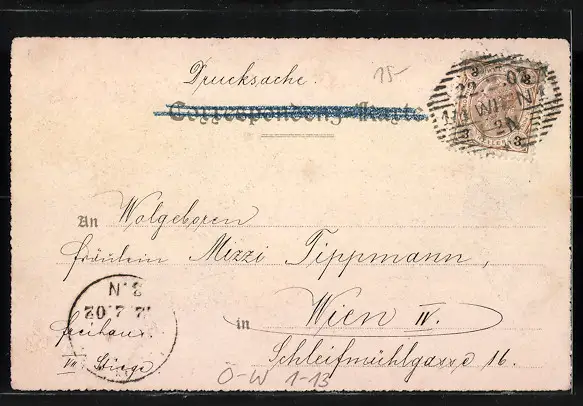 Drucksache. 15-
Correspondenz-Karte
3 3
22 02
1/1 WIEN 1
2N
3 3
An Wolgeboren
Fräulein Mizzi Tippmann,
3.N
12.4.02
in Wien IV.
Freihaus.
Schleifmühlgasse 16.
VII Stiege.
Ö-W 1-13